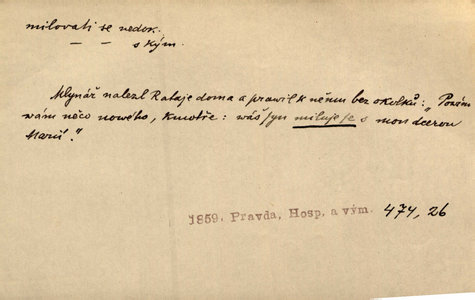 milovati se nedok.
— — s kým.
Mlynář nalezl Rataje doma a prawil k němu bez okolků: „Powím
wám něco nowého, kmotře: wáš syn miluje se s mou dcerou
Marií."
1859. Pravda, Hosp. a vým. 474, 26